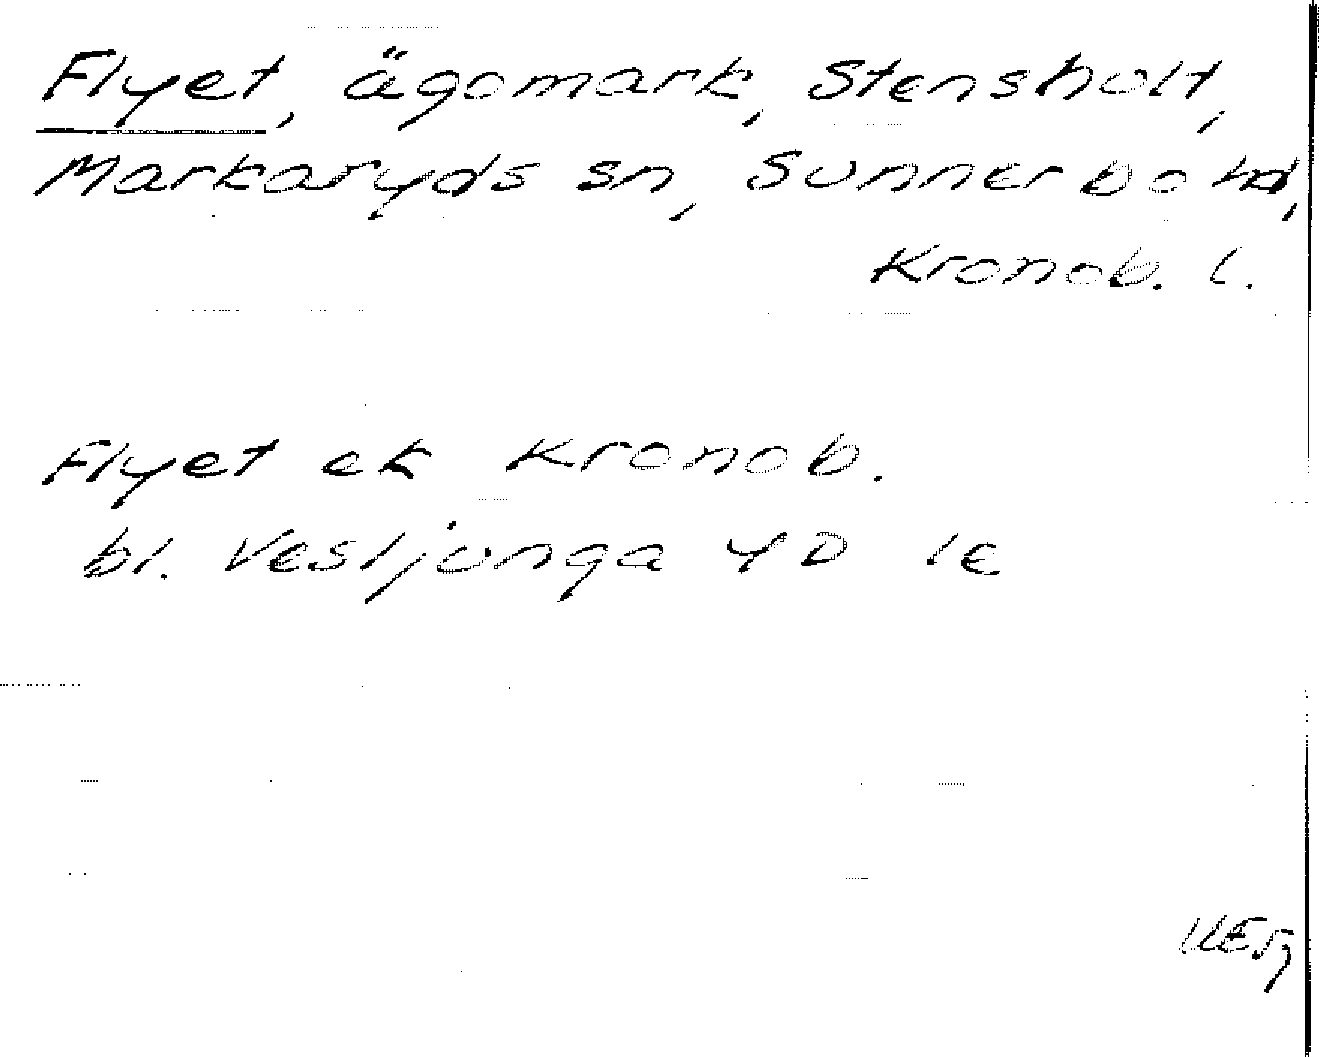 Flyet, ägomark, Stensholt,
Markaryds sn, Sunnerbo hd,
Kronob. l.
Flyet ek Kronob.
bl. Vesljunga 4D 1e